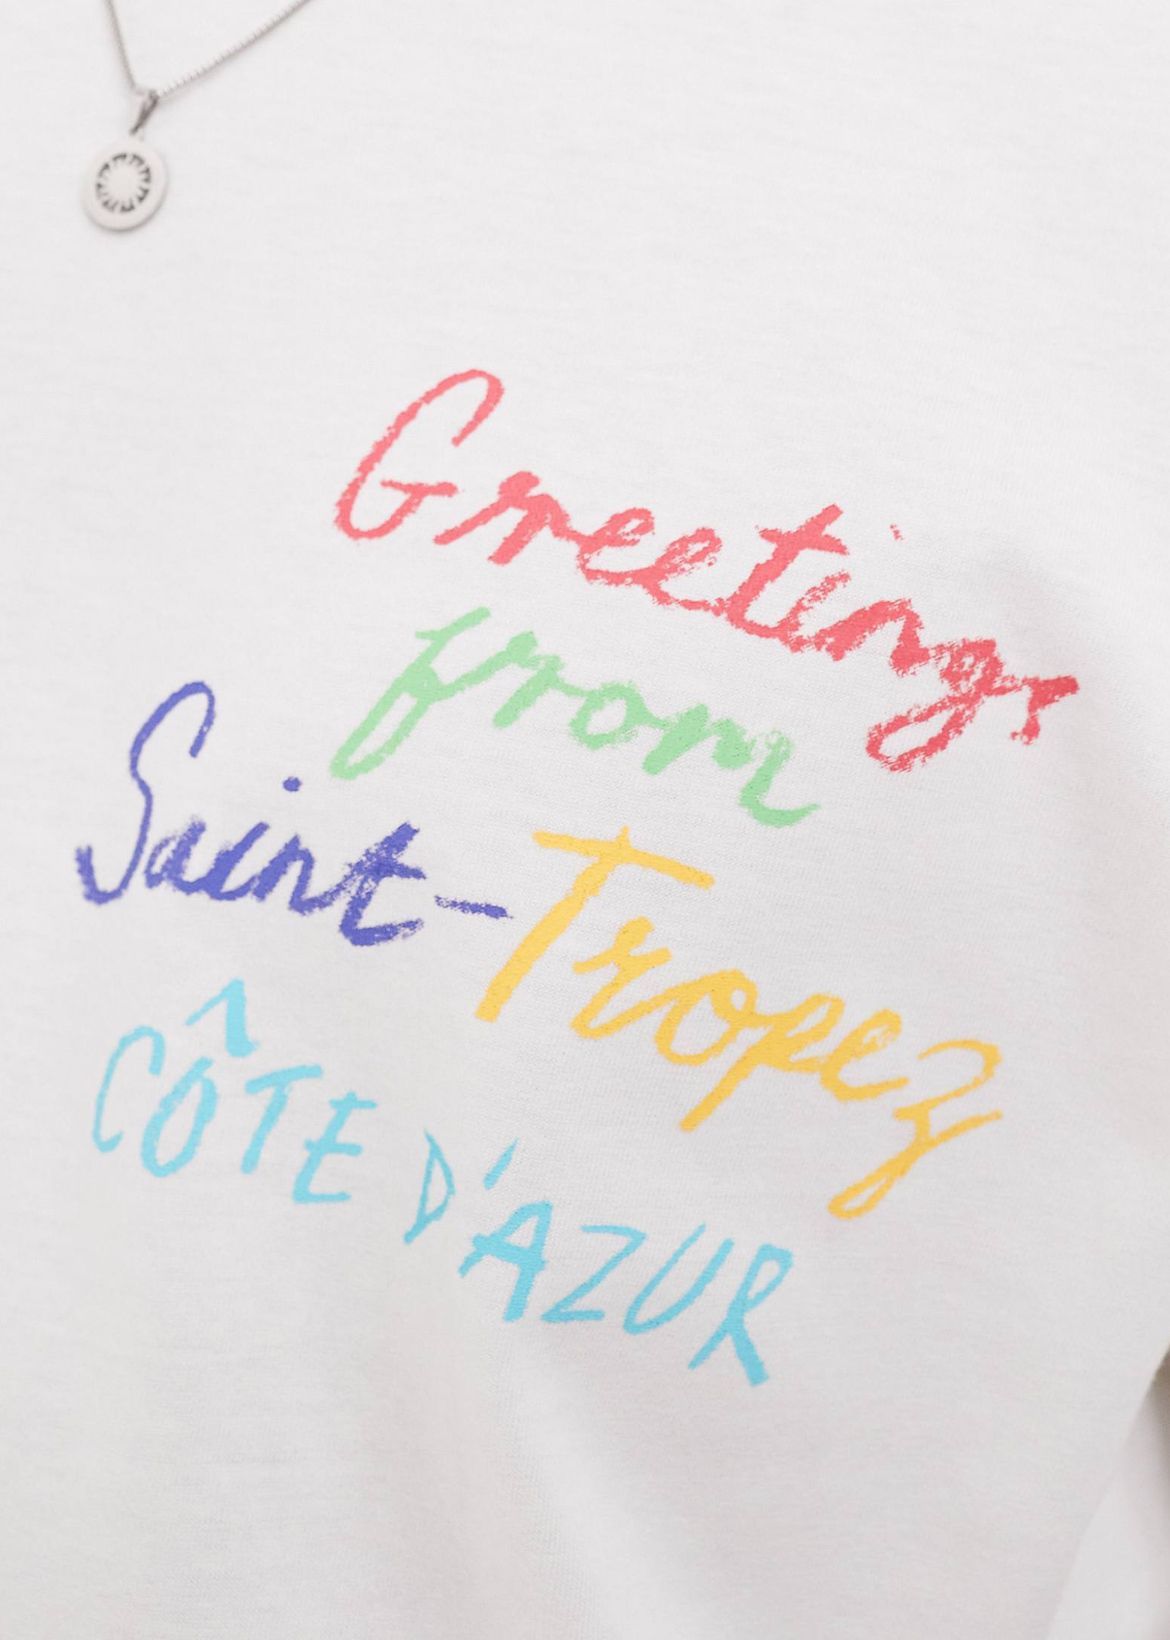 Greetings
from
Saint-Tropez
CÔTE D'AZUR